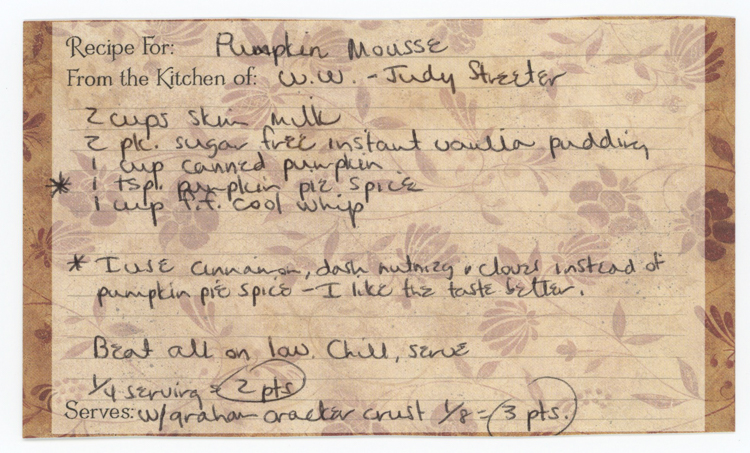 Recipe For: Pumpkin Mousse
From the Kitchen of: W.W. - Judy Streeter
2 cups skim milk
2 pk. sugar free instant vanilla pudding
1 cup canned pumpkin
* 1 tspl. pumpkin pie spice
1 cup f.f. cool whip
* I use cinnamon, dash nutmeg & cloves instead of
pumpkin pie spice - I like the taste better.
Beat all on low. Chill, serve
1/4 serving = 2 pts
Serves: w/graham cracker crust 1/8 = 3 pts.